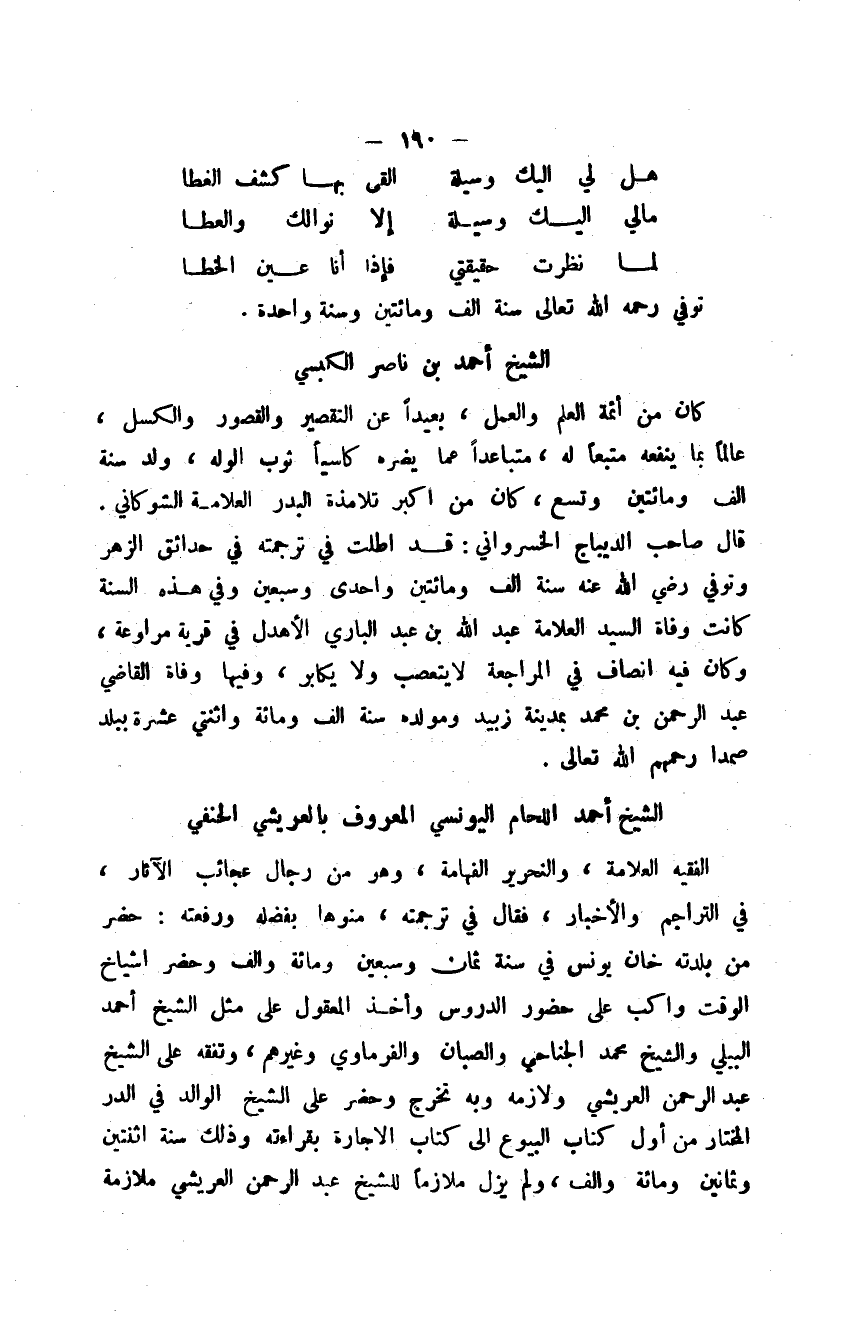 — ١٩٠ —
هل لي اليك وسيلة القى بها كشف الغطا
مالي اليك وسيلة إلا نوالك والعطا
لما نظرت حقيقتي فإذا أنا عين الخطا
توفي رحمه الله تعالى سنة الف ومائتين وسنة واحدة .
الشيخ أحمد بن ناصر الكبسي
كان من أئمة العلم والعمل ، بعيداً عن التقصير والقصور والكسل ،
عالماً بما ينفعه متبعاً له ، متباعداً عما يضره كاسياً ثوب الوله ، ولد سنة
الف ومائتين وتسع ، كان من اكبر تلامذة البدر العلامة الشوكاني .
قال صاحب الديباج الخسرواني : قد اطلت في ترجمته في حدائق الزهر
وتوفي رضي الله عنه سنة الف ومائتين واحدى وسبعين وفي هذه السنة
كانت وفاة السيد العلامة عبد الله بن عبد الباري الأهدل في قرية مراوعة ،
وكان فيه انصاف في المراجعة لايتعصب ولا يكابر ، وفيها وفاة القاضي
عبد الرحمن بن محمد بمدينة زبيد ومولده سنة الف ومائة واثنتي عشرة ببلد
صمدا رحمهم الله تعالى .
الشيخ أحمد اللحام اليونسي المعروف بالعويشي الحنفي
الفقيه العلامة ، والنحرير الفهامة ، وهو من رجال عجائب الآثار ،
في التراجم والأخبار ، فقال في ترجمته ، منوها بفضله ورفعته : حضر
من بلدته خان يونس في سنة ثمان وسبعين ومائة والف وحضر اشياخ
الوقت واكب على حضور الدروس وأخذ المعقول على مثل الشيخ أحمد
البيلي والشيخ محمد الجناحي والصبان والفرماوي وغيرهم ، وتفقه على الشيخ
عبد الرحمن العريشي ولازمه وبه تخرج وحضر على الشيخ الوالد في الدر
المختار من أول كتاب البيوع الى كتاب الاجارة بقراءته وذلك سنة اثنتين
وثمانين ومائة والف ، ولم يزل ملازماً للشيخ عبد الرحمن العريشي ملازمة